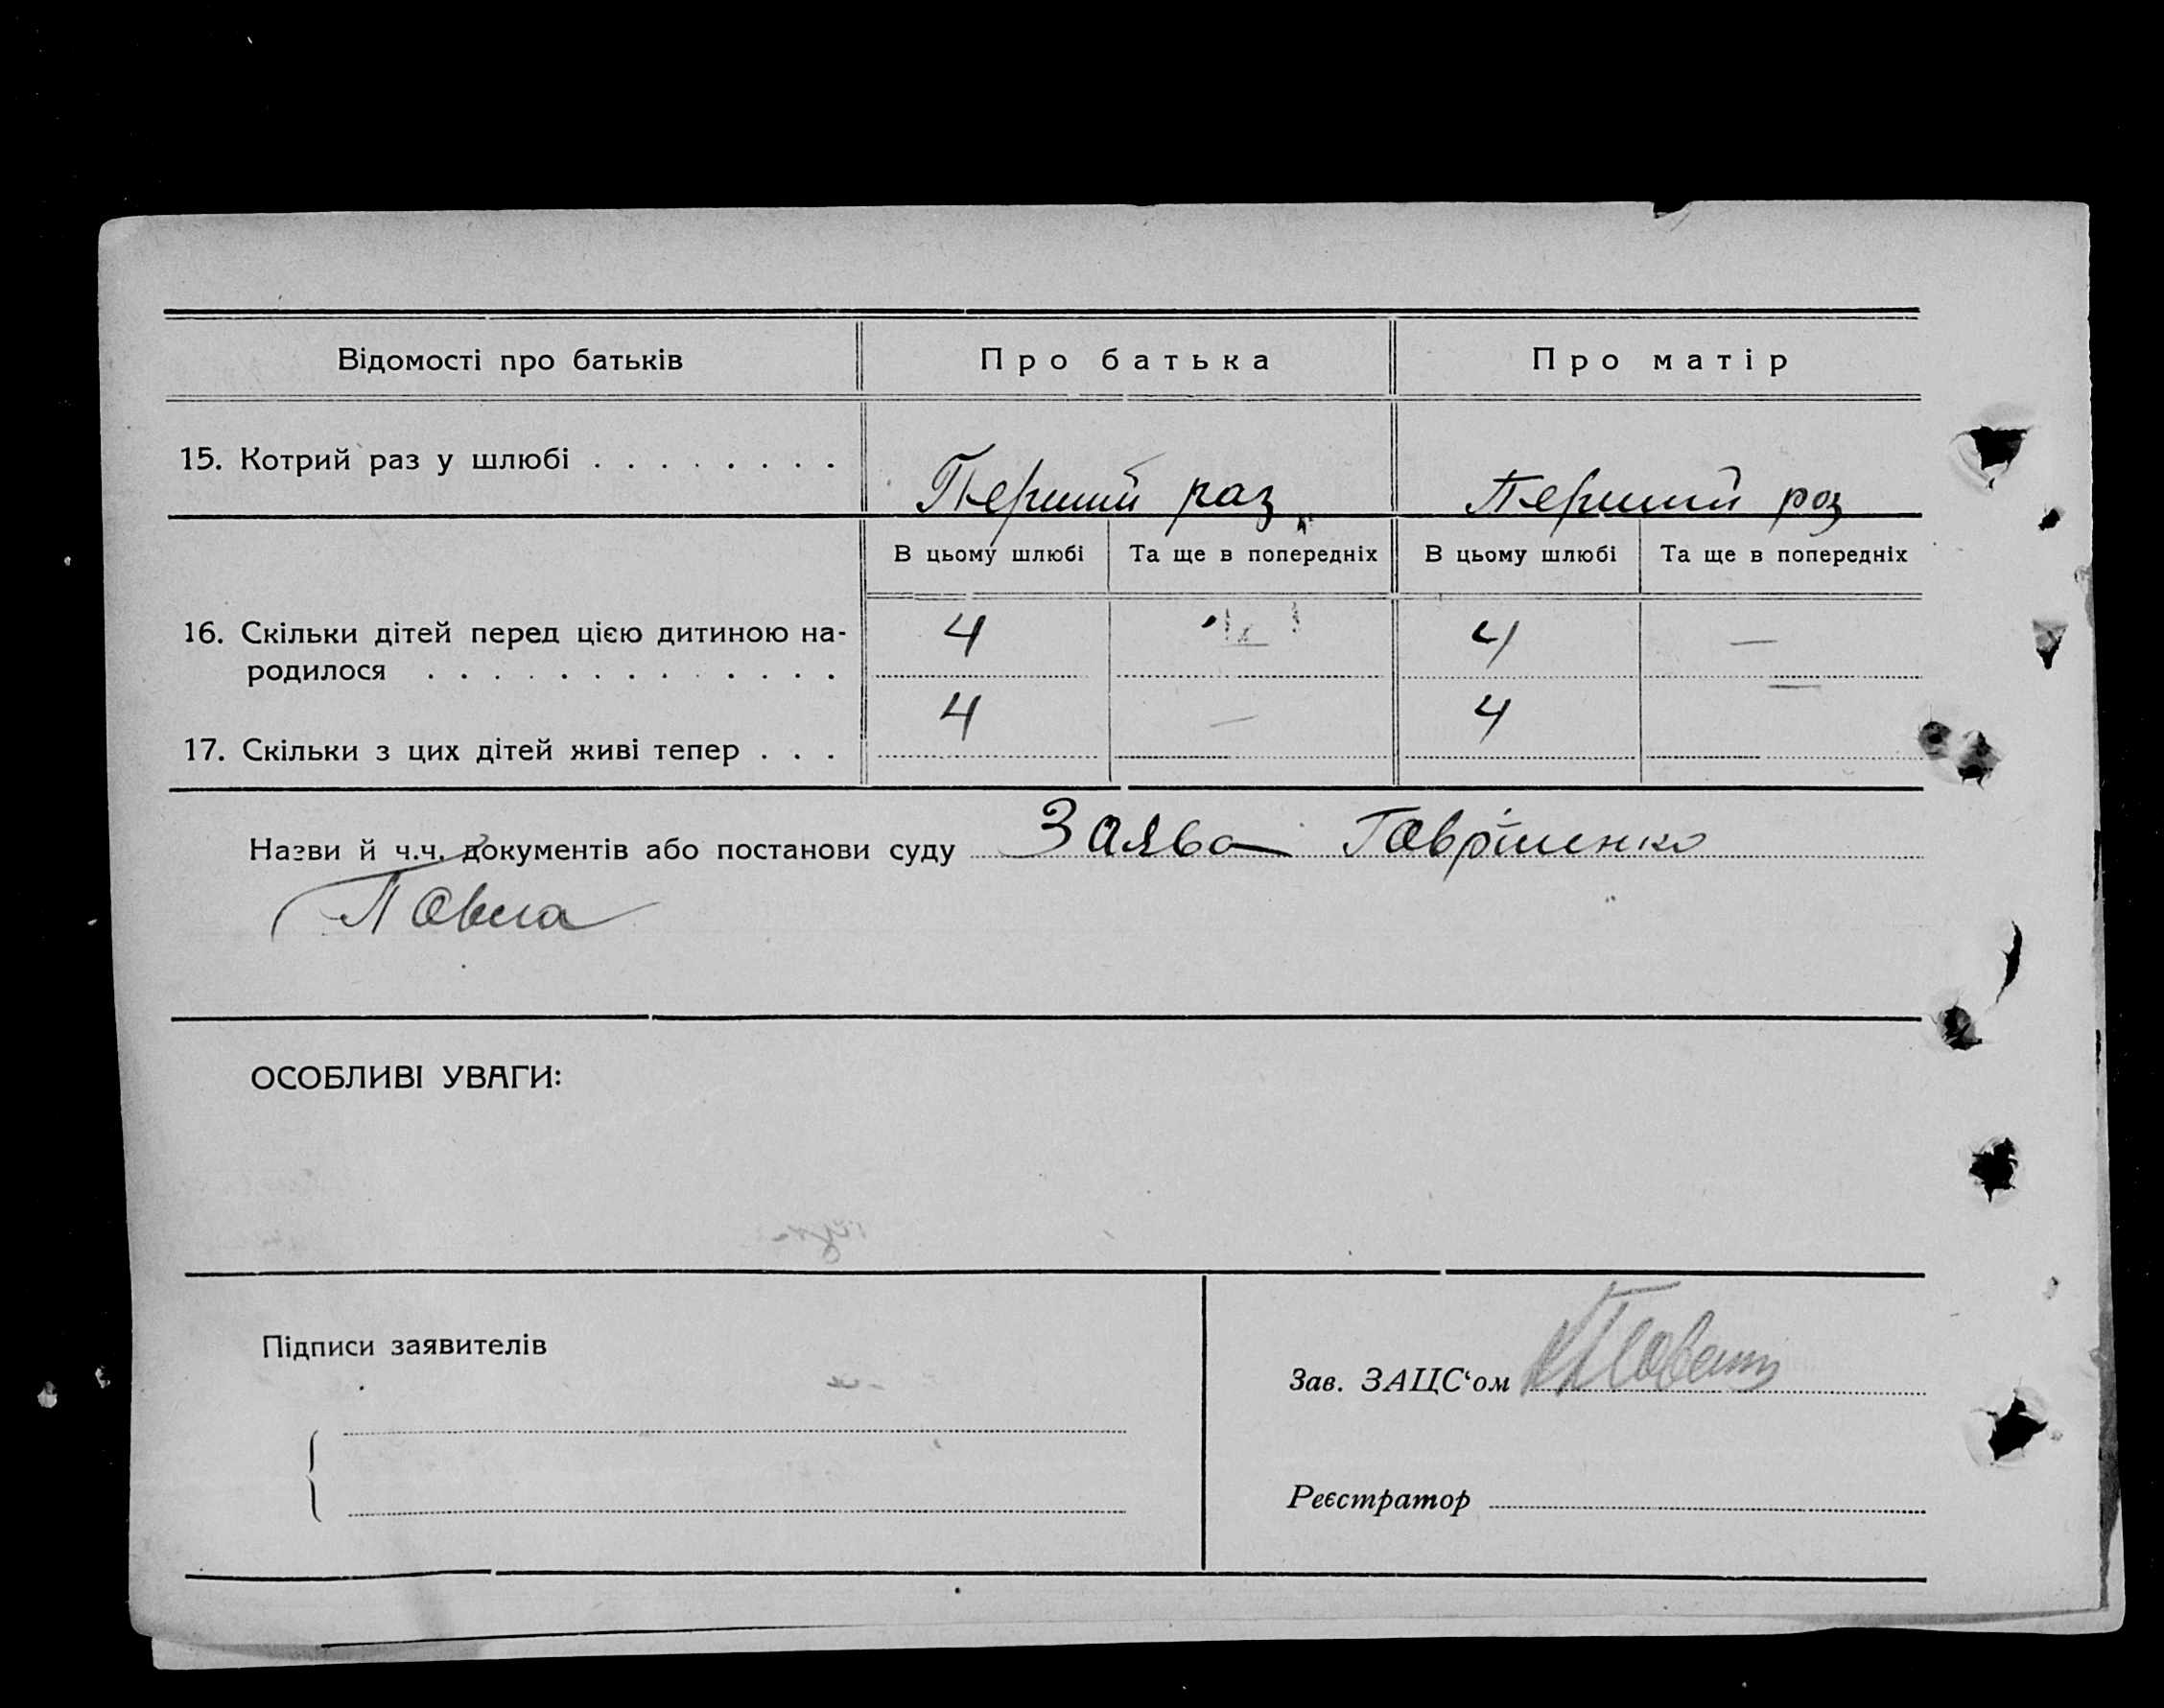 Відомості про батьків Про батька Про матір
15. Котрий раз у шлюбі . . . . . . . . Перший раз Перший раз
В цьому шлюбі Та ще в попередніх В цьому шлюбі Та ще в попередніх
16. Скільки дітей перед цією дитиною на- 4 4 —
родилося . . . . . . . . . . . . .
4 — 4
17. Скільки з цих дітей живі тепер . . .
Назви й ч.ч. документів або постанови суду Заява Гаврішенко
Павла
ОСОБЛИВІ УВАГИ:
Підписи заявителів
Зав. ЗАЦС‘ом
Реєстратор